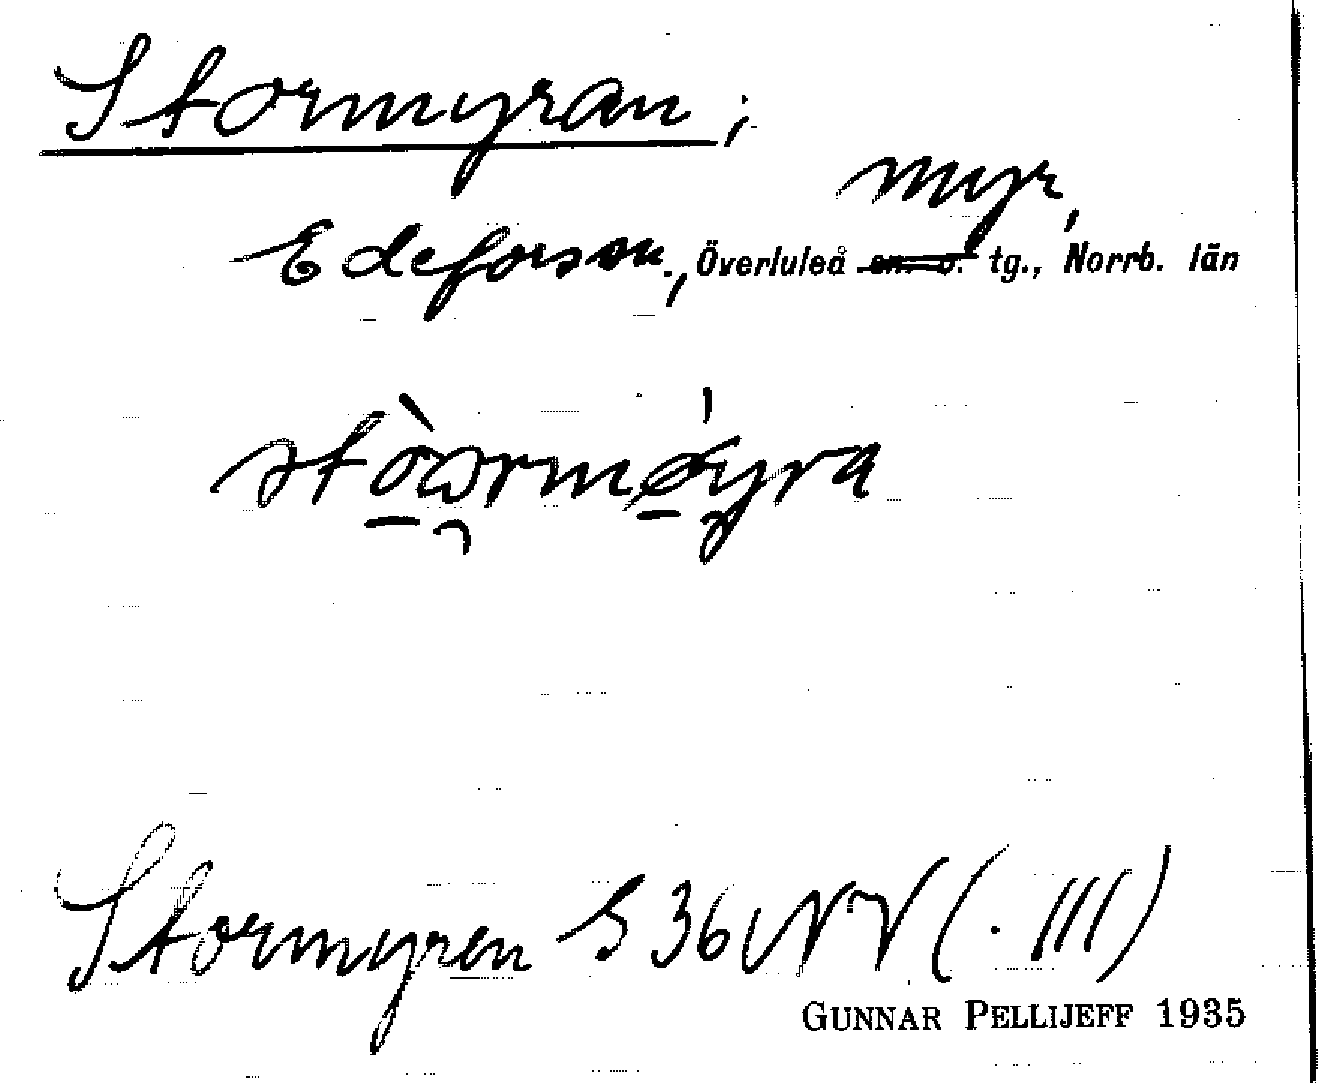 Stormyran;
myr,
Edeforsen., Överluleå sn. o. tg., Norrb. län
Stormyren S 36 NV (. III)
GUNNAR PELLIJEFF 1935